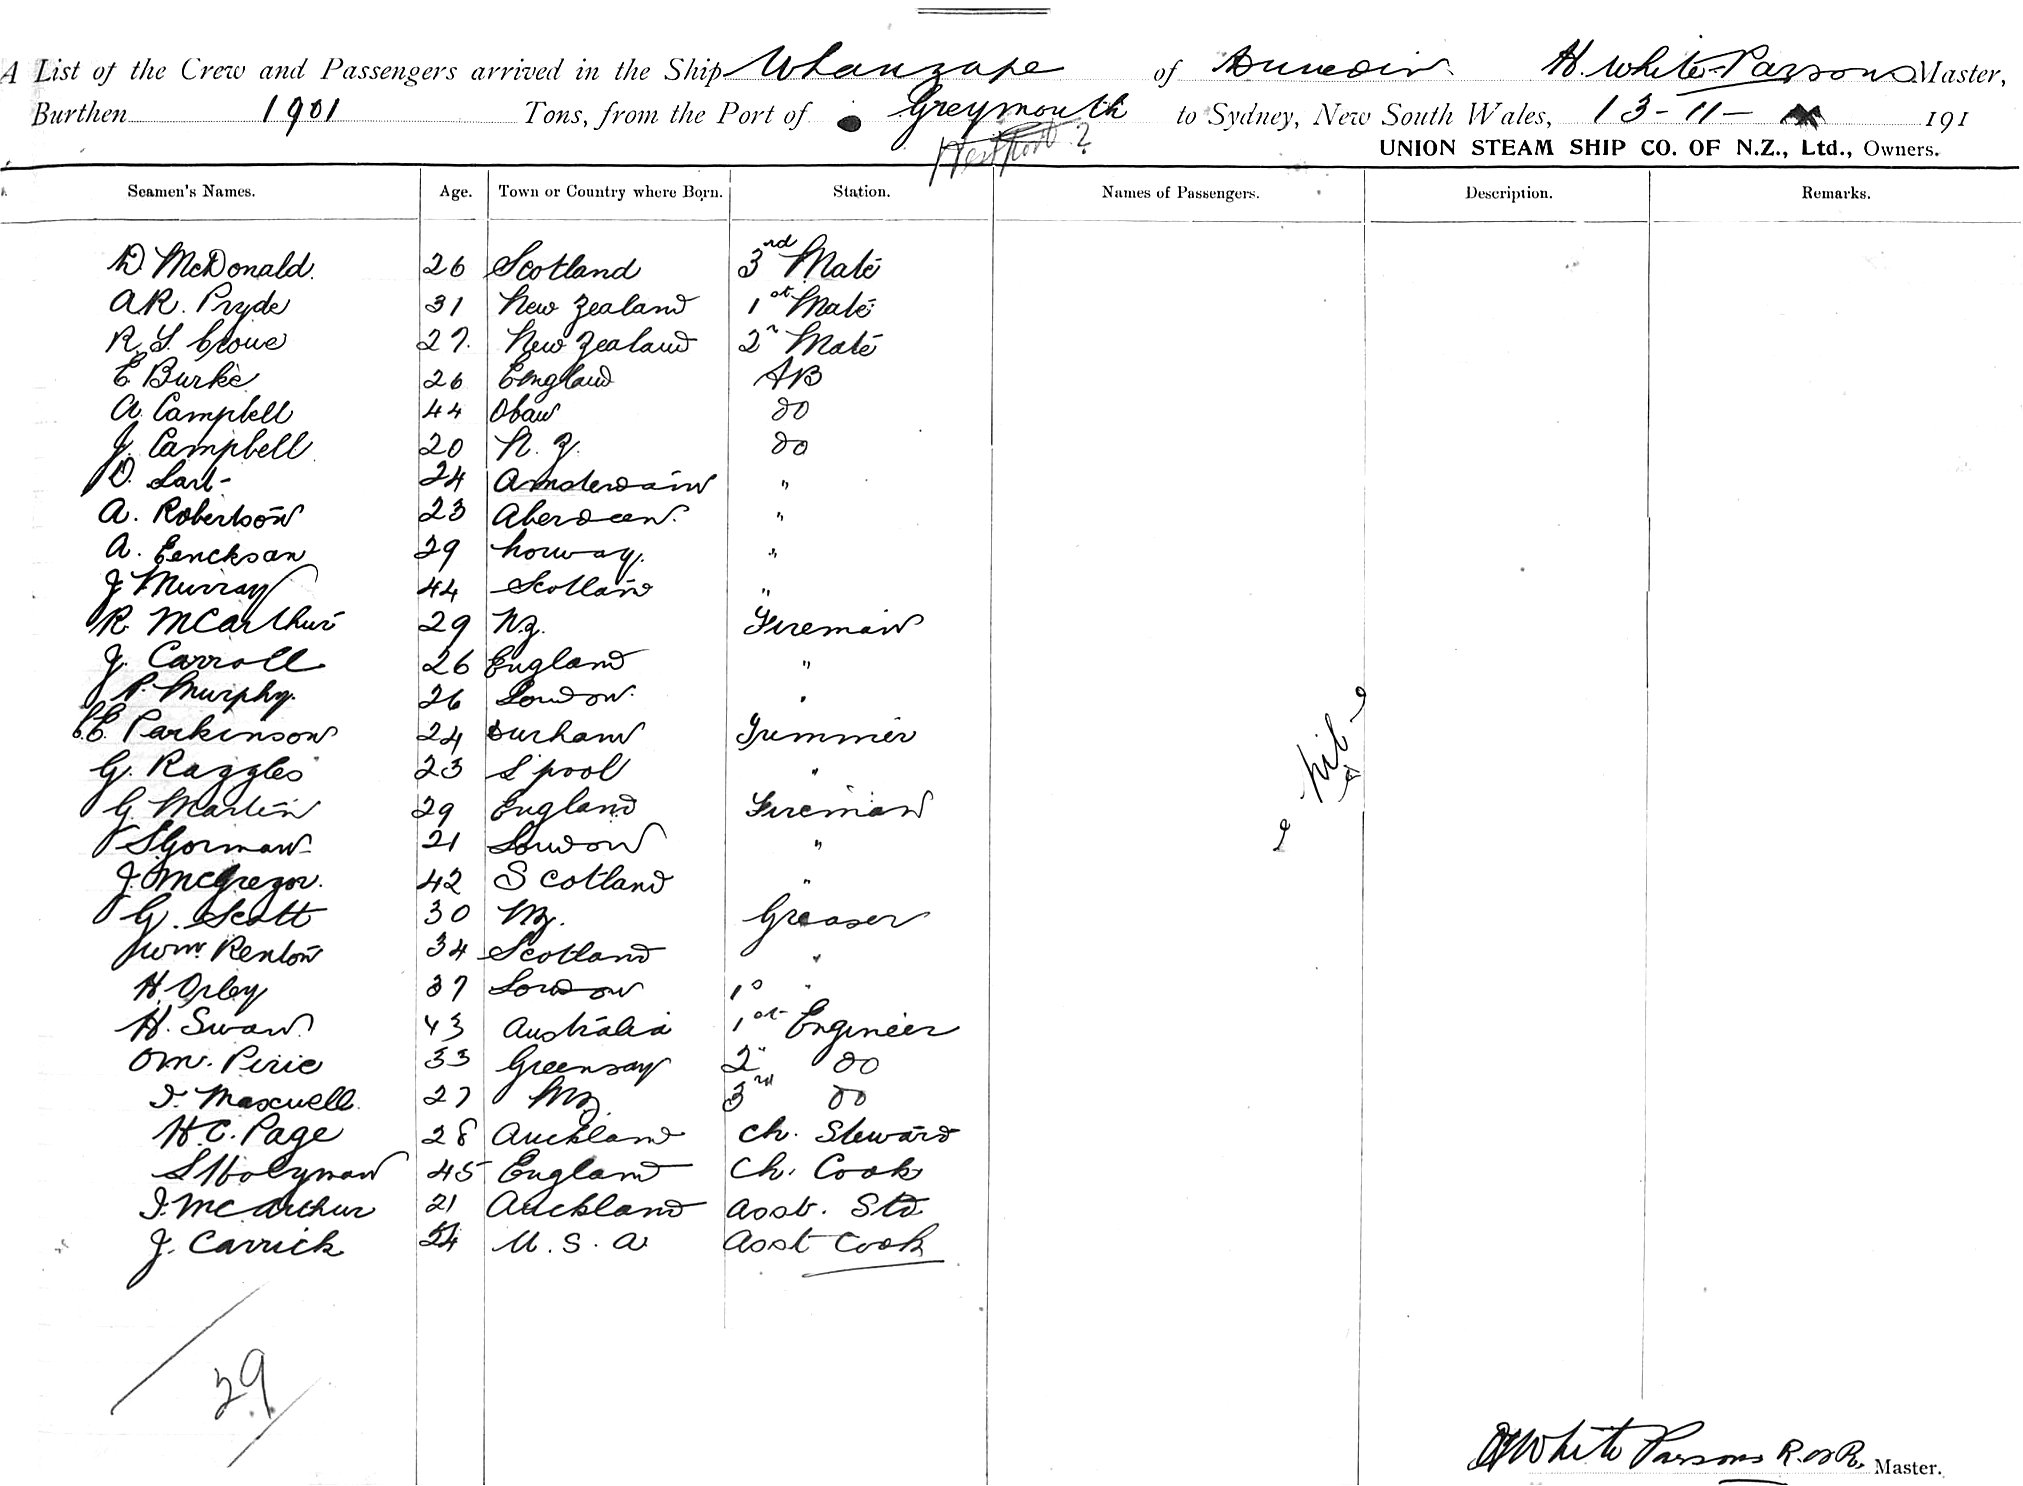 A List of the Crew and Passengers arrived in the Ship Whangape of Dunedin H. White-Parsons Master,
Burthen 1901 Tons, from the Port of Greymouth to Sydney, New South Wales, 13-11- 191
Westport ?
UNION STEAM SHIP CO. OF N.Z., Ltd., Owners.
Seamen's Names. Age. Town or Country where Born. Station. Names of Passengers. Description. Remarks.
D McDonald. 26 Scotland 3rd Mate
A R. Pryde 31 New Zealand 1st Mate
R. G. Crowe 27. New Zealand 2n Mate
E Burke 26 England AB
A. Campbell 44 Oban do
J. Campbell 20 N. Z. do
D. 24 Amsterdam "
A. Robertson 23 Aberdeen. "
A. 29 Norway. "
J Murray 44 Scotland "
R McArthur 29 N.Z. Fireman
J. Carroll 26 England "
P. Murphy. 26 London. "
C.E. Parkinson 24 Durham Trimmer
G. Raggles 23 L'pool "
G. Martin 29 England Fireman
S Gorman 21 London "
J. McGregor. 42 Scotland "
G. Scott 30 NZ. Greaser
Wm. Renton 34 Scotland "
H. 37 London "
H. Swan 43 Australia 1st Engineer
Pirie 33 2" do
Maxwell. 27 NZ 3rd do
H. C. Page 28 Auckland Ch. Steward
S Holyman 45 England Ch. Cook
J. McArthur 21 Auckland Asst. Std.
J. Carrick 24 U. S. A Asst Cook
Nil
29
H White Parsons R.N.R. Master.